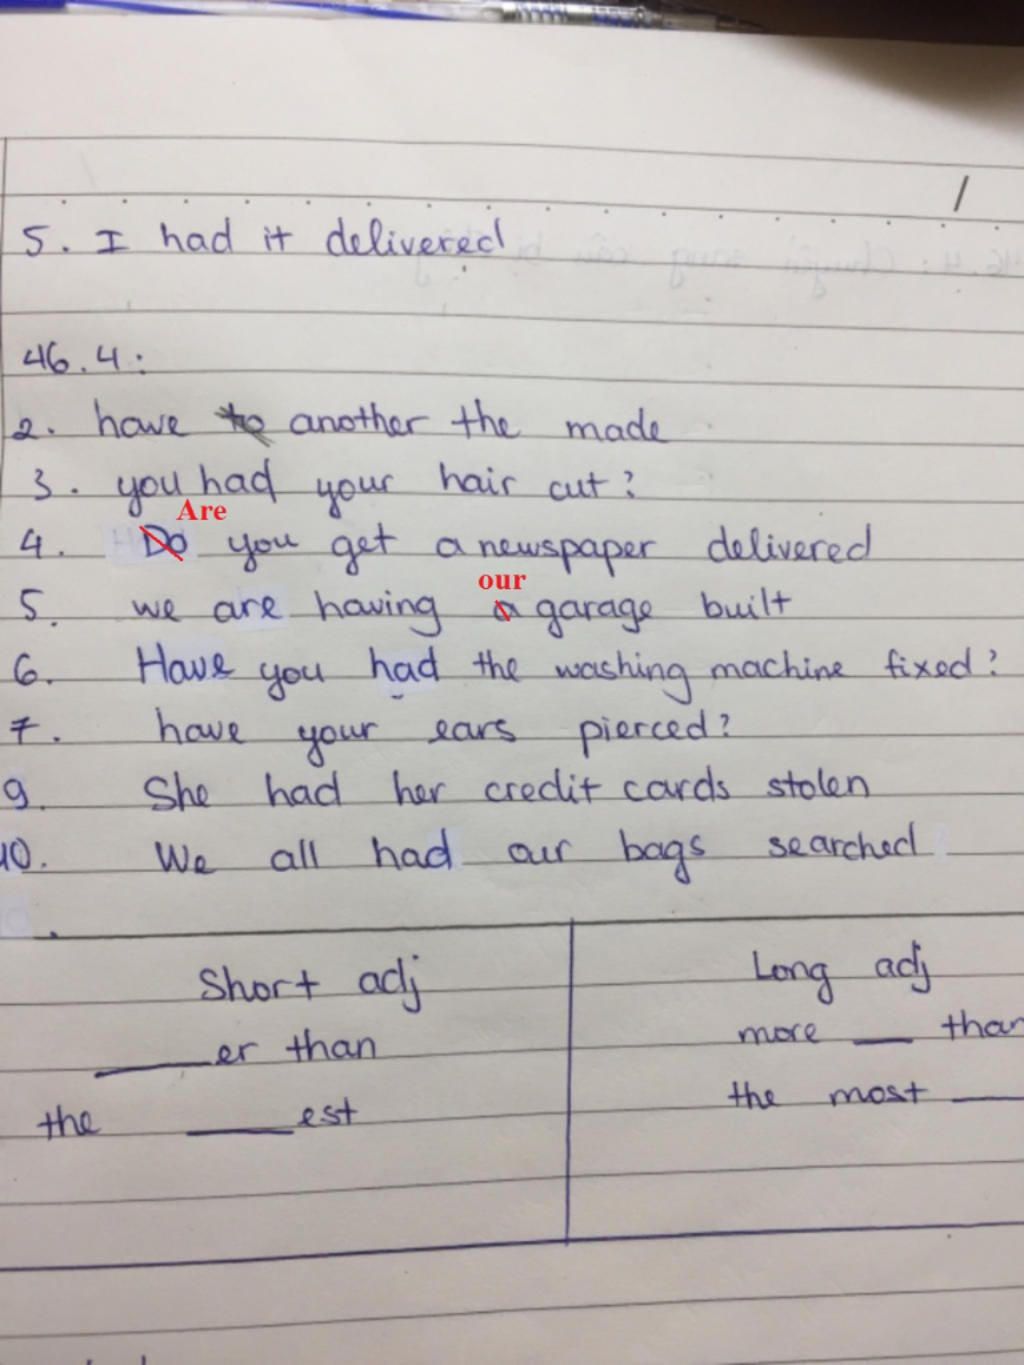 5. I had it delivered
46.4:
2. have to another the made
3. you had your hair cut?
Are
4. Do you get a newspaper delivered
our
5. we are having a garage built
6. Have you had the washing machine fixed?
7. have your ears pierced?
9. She had her credit cards stolen
10. We all had our bags searched
Short adj
___er than
the ___est
Long adj
more ___ than
the most ___